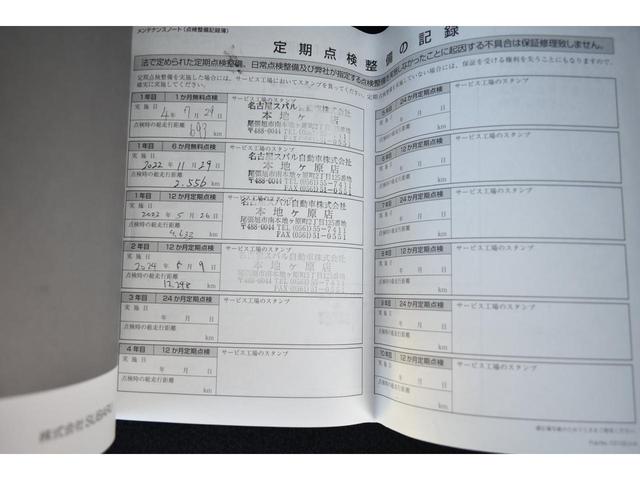 メンテナンスノート(点検整備記録簿)
定期点検整備の記録
法で定められた定期点検整備、日常点検整備及び弊社が指定する点検整備を実施しなかったことに起因する不具合は保証修理致しません。
1年目 1か月無料点検
サービス工場のスタンプ
実施日
4年 7月 29日
点検時の総走行距離
697 km
名古屋スバル自動車株式会社
本地ヶ原店
尾張旭市南本地ヶ原町2丁目125番地
〒488-0044 TEL(0561)55-7411
FAX(0561)51-0551
1年目 6か月無料点検
サービス工場のスタンプ
実施日
2022年 11月 29日
点検時の総走行距離
2.556 km
名古屋スバル自動車株式会社
本地ヶ原店
尾張旭市南本地ヶ原町2丁目125番地
〒488-0044 TEL(0561)55-7411
FAX(0561)51-0551
1年目 12か月定期点検
サービス工場のスタンプ
実施日
5月 26日
点検時の総走行距離
km
名古屋スバル自動車株式会社
本地ヶ原店
尾張旭市南本地ヶ原町2丁目125番地
〒488-0044 TEL(0561)55-7411
FAX(0561)51-0551
2年目 12か月定期点検
サービス工場のスタンプ
実施日
2024年 5月 9日
点検時の総走行距離
km
名古屋スバル自動車株式会社
本地ヶ原店
尾張旭市南本地ヶ原町2丁目125番地
〒488-0044 TEL(0561)55-7411
FAX(0561)51-0551
3年目 24か月定期点検
サービス工場のスタンプ
実施日
年 月 日
点検時の総走行距離
km
4年目 12か月定期点検
サービス工場のスタンプ
実施日
年 月 日
点検時の総走行距離
km
5年目 24か月定期点検
サービス工場のスタンプ
実施日
年 月 日
点検時の総走行距離
km
12か月定期点検
サービス工場のスタンプ
実施日
年 月 日
点検時の総走行距離
km
7年目 24か月定期点検
サービス工場のスタンプ
実施日
年 月 日
点検時の総走行距離
km
12か月定期点検
サービス工場のスタンプ
実施日
年 月 日
点検時の総走行距離
km
9年目 24か月定期点検
サービス工場のスタンプ
実施日
年 月 日
点検時の総走行距離
km
10年目 12か月定期点検
サービス工場のスタンプ
実施日
年 月 日
点検時の総走行距離
km
株式会社SUBARU